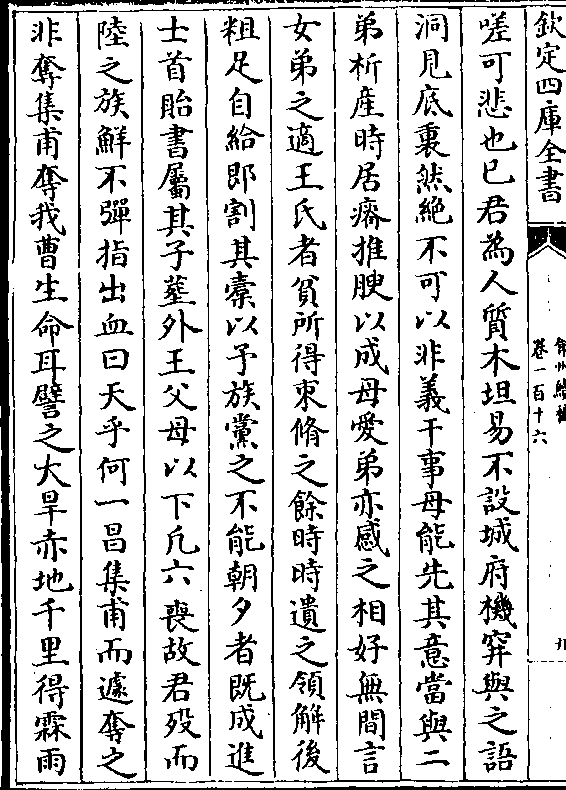 欽定四庫全書
弇州續稿
卷一百十六
九
嗟可悲也已君為人質木坦易不設城府機穽與之語
洞見底裏然絶不可以非義干事母能先其意當與二
弟析産時居瘠推腴以成母愛弟亦感之相好無間言
女弟之適王氏者貧所得束脩之餘時時遺之領解後
粗足自給即割其槖以予族黨之不能朝夕者既成進
士首貽書屬其子葬外王父母以下凡六喪故君殁而
陸之族鮮不彈指出血曰天乎何一昌集甫而遽奪之
非奪集甫奪我曹生命耳譬之大旱赤地千里得霖雨